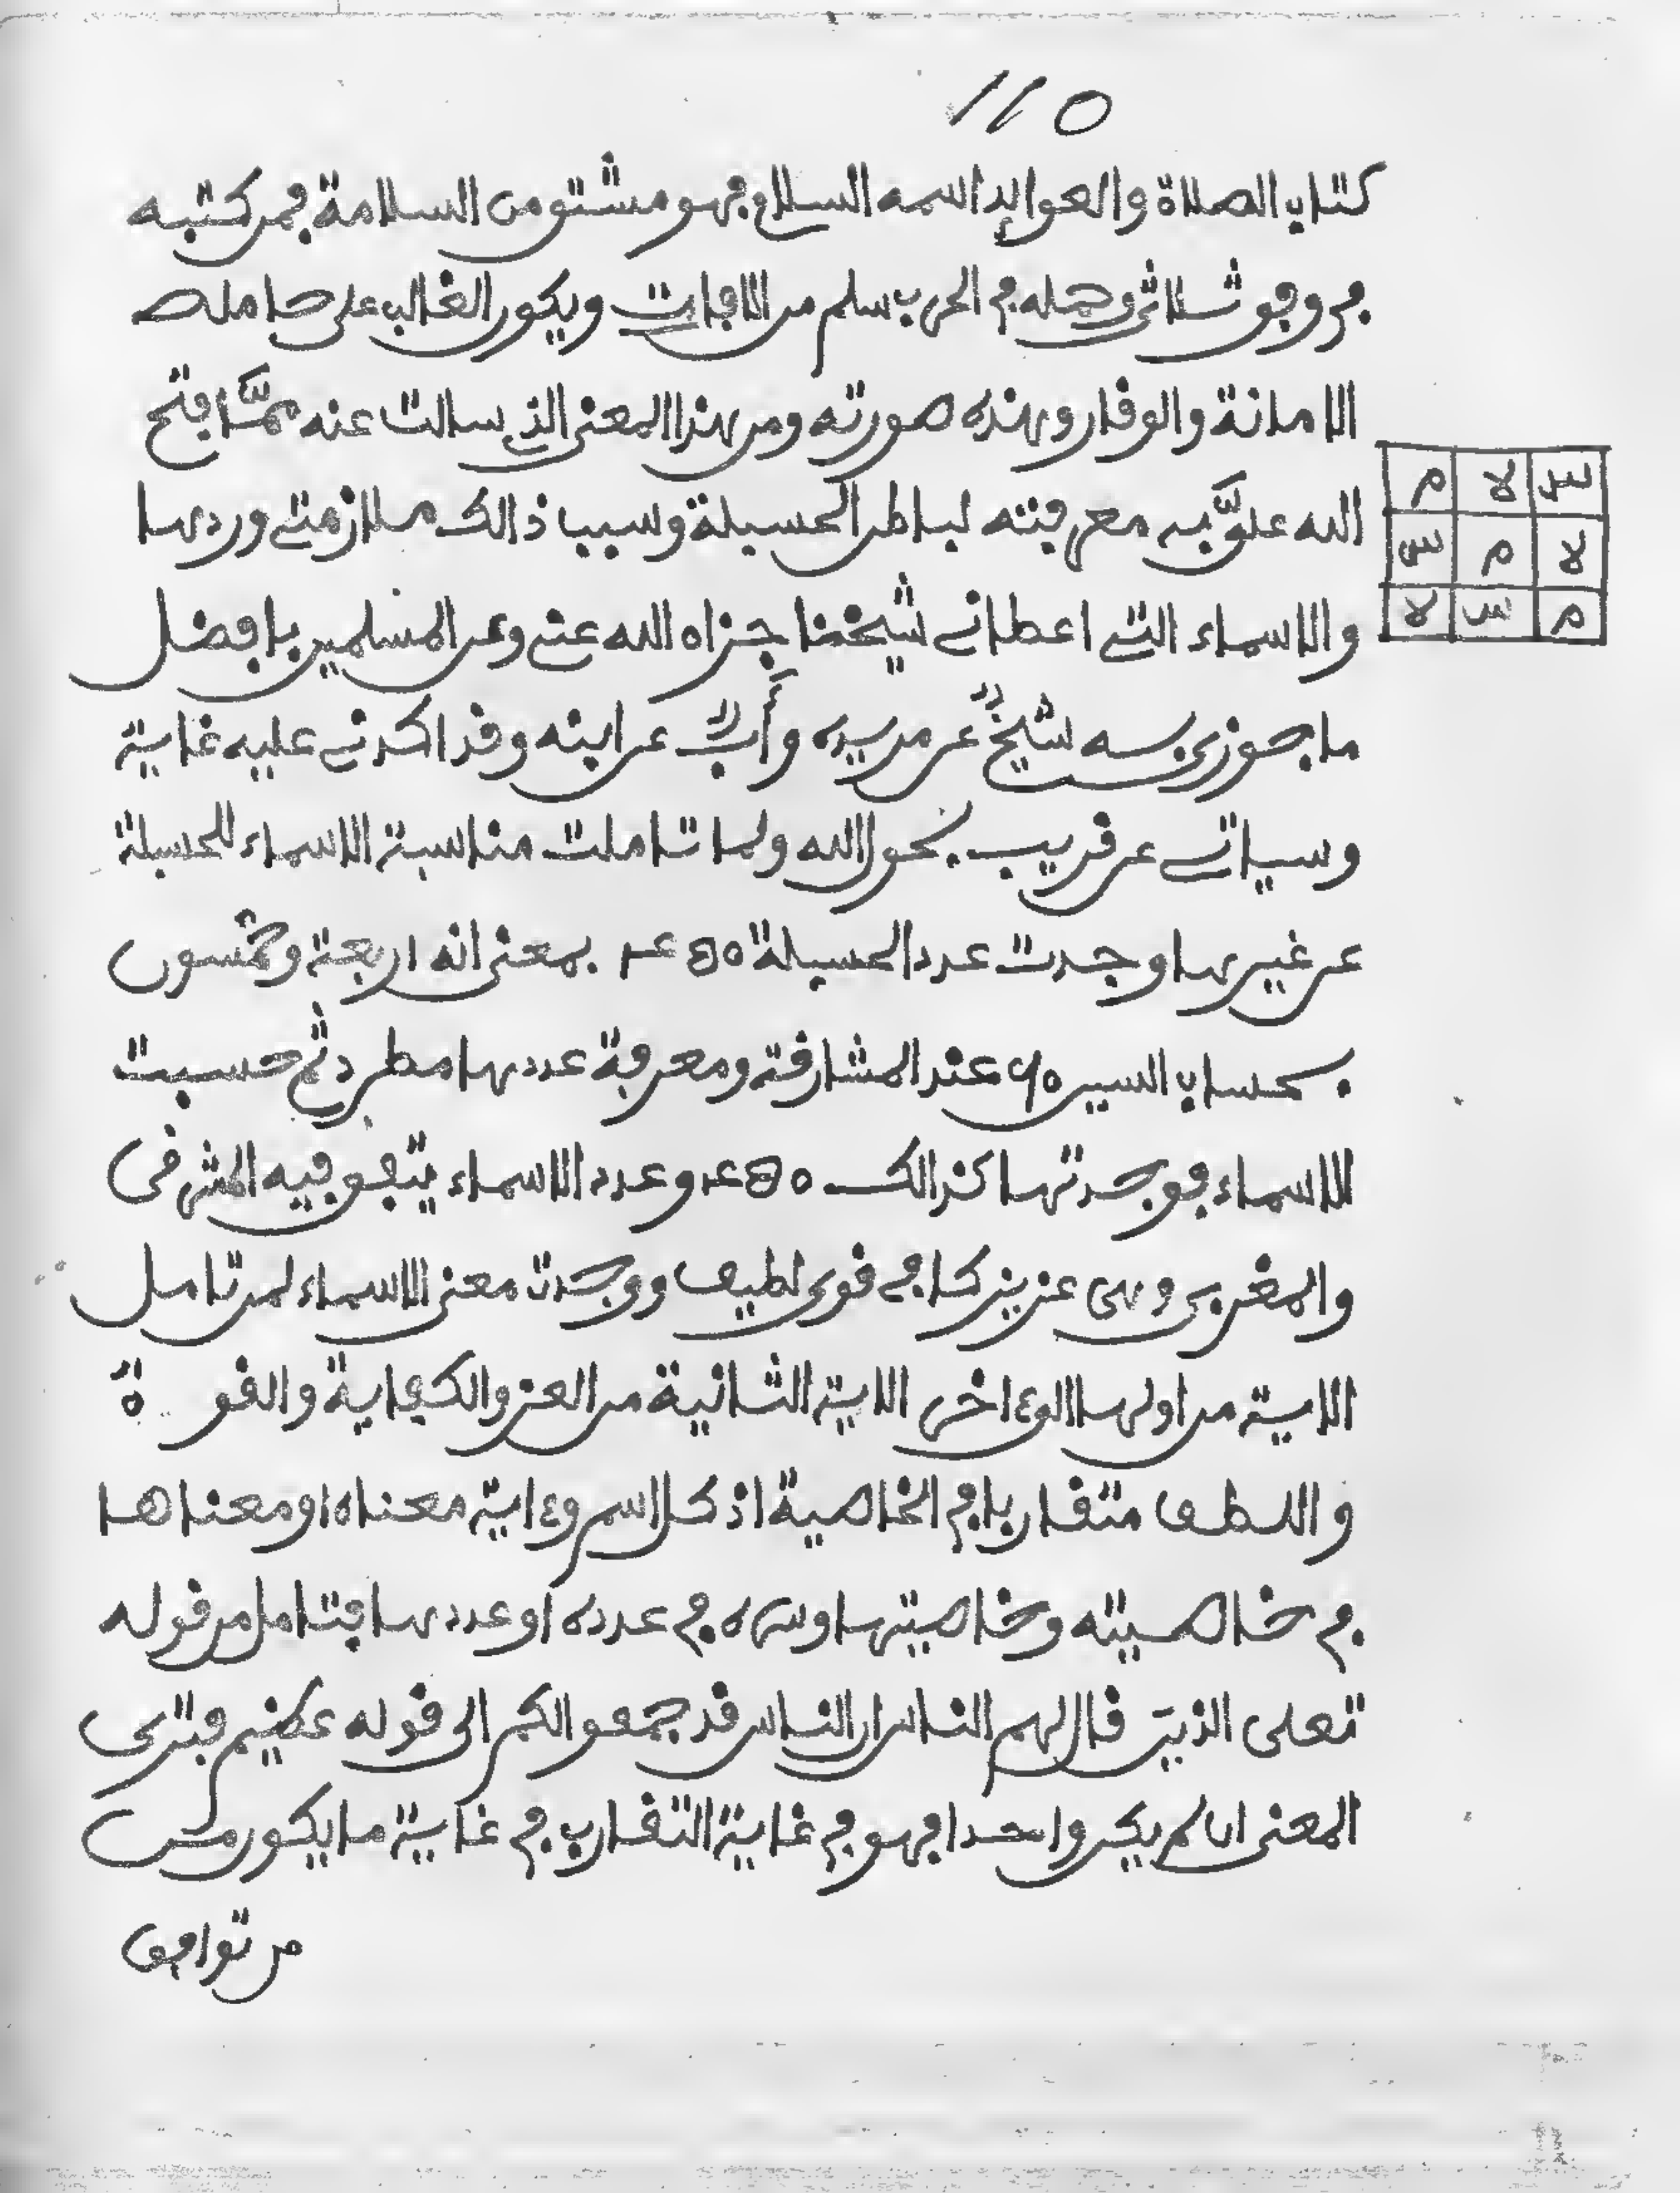 110
كتاب الصلاة والعوايد اسمه السلام فهو مشتق من السلامة فمن كتبه
في وفق ثلاثي وحمله في الحرب سلم من الافات ويكون الغالب على حامله
الامانة والوقار وهذه صورته ومن هذا المعنى الذي سالت عنه ممّا فتح
س لا م
لا م س
م س لا
الله عليّ به معرفته لباطن الحسبلة وسبب ذالك ملازمتي وردها
والاسماء التي اعطاني شيخنا جزاه الله عني وعن المسلمين بافضل
ما جوزي به شيخٌ عن مريده وأبٌ عن ابنه وقد اكدني عليه غاية
وسياتي عن قريب بحول الله ولما تاملت مناسبة الاسماء للحسبلة
عن غيرها وجدت عدد الحسبلة بمعنى انه اربعة وخمسون
بحساب السين عند المشارقة ومعرفة عددها مطرد ثم حسبت
الاسماء فوجدتها كذالك وعدد الاسماء يتفق فيه المشرقي
والمغربي وهي عزيز كافي قوي لطيف ووجدت معنى الاسماء لمن تامل
الاية من اولها الى ءاخر الاية الثانية من العز والكفاية والقوة
واللطف متقاربا في الخاصية اذ كل اسم وءاية معناه او معناها
في خاصيته وخاصيتها وسره في عدده او عددها فتامل من قوله
تعلى الذين قال لهم الناس ان الناس قد جمعوا لكم الى قوله عظيم فترى
المعنى ان لم يكن واحدا فهو في غاية التقارب في غاية ما يكون من
من توافق